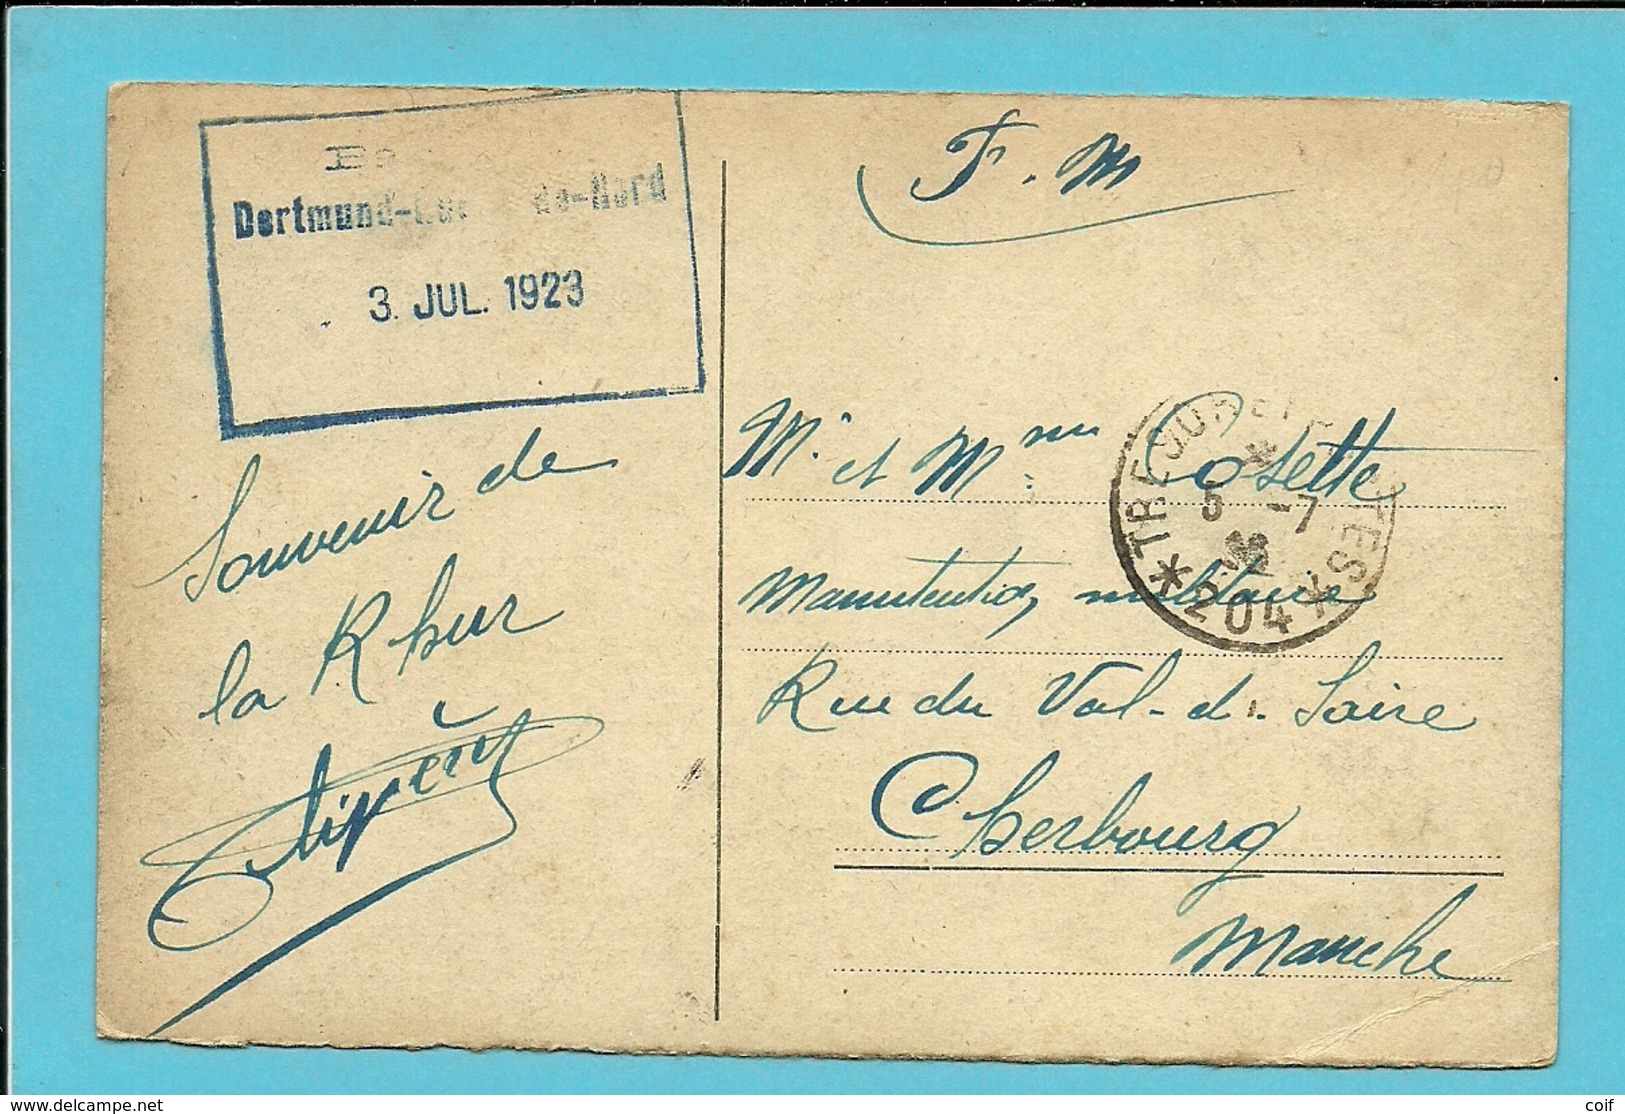 Dortmund- de-Nord
3. JUL. 1923
F. M
Souvenir de
la Rhur
Mr. et Mme. Cosette
Manutention militaire
Rue du Val-de-Saire
Cherbourg
Manche
*TRESOR ET POSTES*
*
5 -7
23
204
delcampe.net
coif